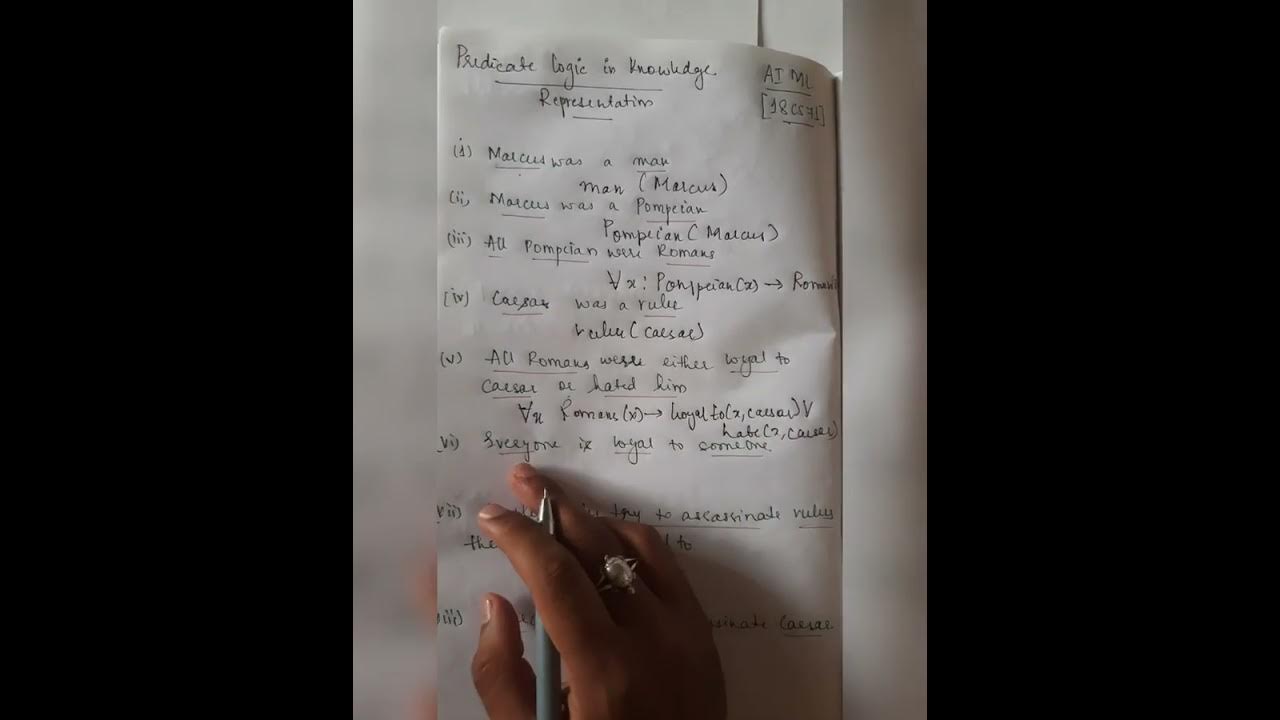 Predicate Logic in Knowledge
Representation
AI ML
[18CS71]
(i) Marcus was a man
man (Marcus)
(ii) Marcus was a Pompeian
Pompeian (Marcus)
(iii) All Pompeian were Romans
∀x: Pompeian(x) → Roman
(iv) Caesar was a ruler
ruler (caesar)
(v) All Romans were either loyal to
Caesar or hated him
∀x Romans(x) → loyalto(x, caesar) ∨
hate(x, caesar)
vi) Everyone is loyal to someone.
vii) try to assassinate ruler
the to
iii) Caesar